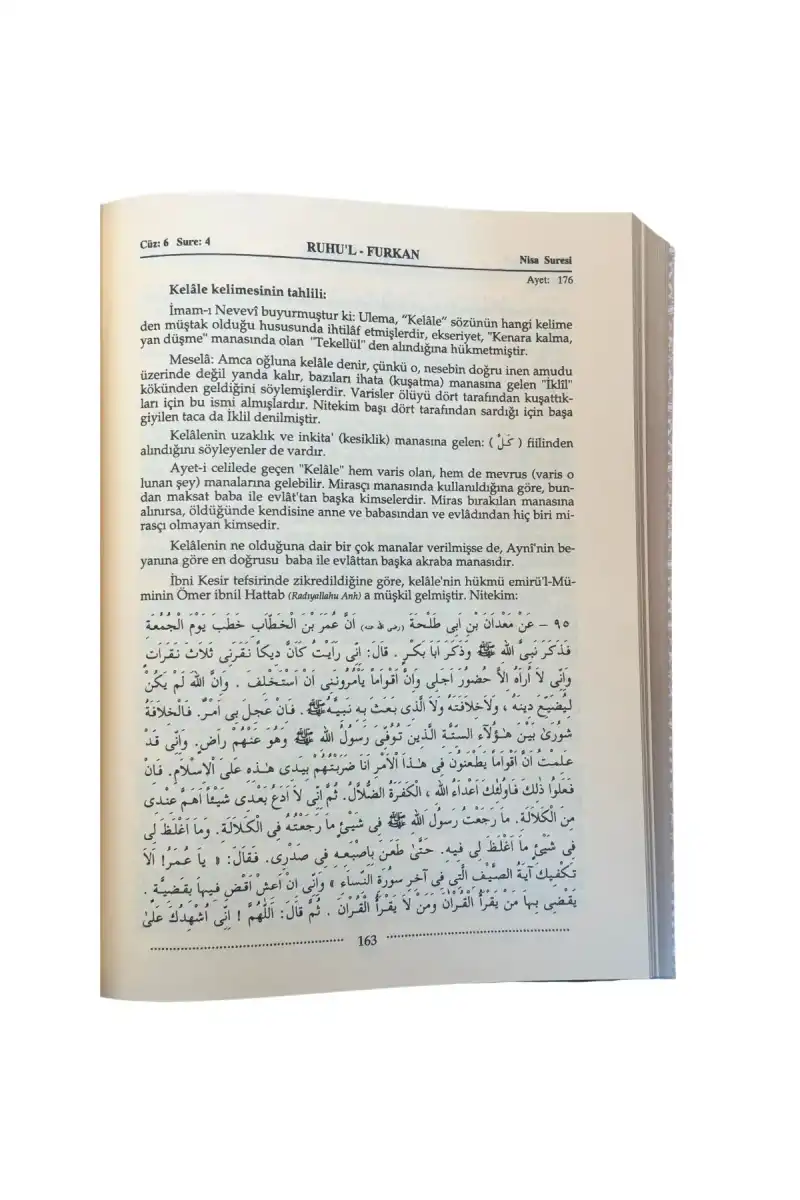 Cüz: 6 Sure: 4
RUHU'L - FURKAN
Nisa Suresi
Ayet: 176
Kelâle kelimesinin tahlili:
İmam-ı Nevevî buyurmuştur ki: Ulema, "Kelâle" sözünün hangi kelime
den müştak olduğu hususunda ihtilâf etmişlerdir, ekseriyet, "Kenara kalma,
yan düşme" manasında olan "Tekellül" den alındığına hükmetmiştir.
Meselâ: Amca oğluna kelâle denir, çünkü o, nesebin doğru inen amudu
üzerinde değil yanda kalır, bazıları ihata (kuşatma) manasına gelen "İklîl"
kökünden geldiğini söylemişlerdir. Varisler ölüyü dört tarafından kuşattık-
ları için bu ismi almışlardır. Nitekim başı dört tarafından sardığı için başa
giyilen taca da İklil denilmiştir.
Kelâlenin uzaklık ve inkita' (kesiklik) manasına gelen: ( كَلَّ ) fiilinden
alındığını söyleyenler de vardır.
Ayet-i celilede geçen "Kelâle" hem varis olan, hem de mevrus (varis o
lunan şey) manalarına gelebilir. Mirasçı manasında kullanıldığına göre, bun-
dan maksat baba ile evlât'tan başka kimselerdir. Miras bırakılan manasına
alınırsa, öldüğünde kendisine anne ve babasından ve evlâdından hiç biri mi-
rasçı olmayan kimsedir.
Kelâlenin ne olduğuna dair bir çok manalar verilmişse de, Aynî'nin be-
yanına göre en doğrusu baba ile evlâttan başka akraba manasıdır.
İbni Kesir tefsirinde zikredildiğine göre, kelâle'nin hükmü emirü'l-Mü-
minin Ömer ibnil Hattab (Radıyallahu Anh) a müşkil gelmiştir. Nitekim:
٩٥ – عَنْ مَعْدَانَ بْنِ اَبِى طَلْحَةَ (رضى الله عنه) اَنَّ عُمَرَ بْنَ الْخَطَّابِ خَطَبَ يَوْمَ الْجُمُعَةِ
فَذَكَرَ نَبِىَّ اللهِ ﷺ وَذَكَرَ اَبَا بَكْرٍ . قَالَ: اِنِّى رَاَيْتُ كَاَنَّ دِيكاً نَقَرَنِى ثَلاَثَ نَقَرَاتٍ
وَاِنِّى لاَ اُرَاهُ اِلاَّ حُضُورَ اَجَلِى وَاِنَّ اَقْوَاماً يَاْمُرُونَنِى اَنْ اَسْتَخْلِفَ . وَاِنَّ اللهَ لَمْ يَكُنْ
لِيُضَيِّعَ دِينَهُ ، وَلاَخِلاَفَتَهُ وَلاَ الَّذِى بَعَثَ بِهِ نَبِيَّهُ ﷺ . فَاِنْ عَجِلَ بِى اَمْرٌ. فَالْخِلاَفَةُ
شُورَىٰ بَيْنَ هٰؤُلاَءِ السِّتَّةِ الَّذِينَ تُوُفِّىَ رَسُولُ اللهِ ﷺ وَهُوَ عَنْهُمْ رَاضٍ. وَاِنِّى قَدْ
عَلِمْتُ اَنَّ اَقْوَاماً يَطْعَنُونَ فِى هٰذَا اْلاَمْرِ اَنَا ضَرَبْتُهُمْ بِيَدِى هٰذِهِ عَلَى اْلاِسْلاَمِ. فَاِنْ
فَعَلُوا ذٰلِكَ فَاُولٰئِكَ اَعْدَاءُ اللهِ ، الْكَفَرَةُ الضُّلاَّلُ. ثُمَّ اِنِّى لاَ اَدَعُ بَعْدِى شَيْئاً اَهَمَّ عِنْدِى
مِنَ الْكَلاَلَةِ. مَا رَجَعْتُ رَسُولَ اللهِ ﷺ فِى شَيْئٍ مَا رَجَعْتُهُ فِى الْكَلاَلَةِ. وَمَا اَغْلَظَ لِى
فِى شَيْئٍ مَا اَغْلَظَ لِى فِيهِ. حَتَّى طَعَنَ بِاِصْبَعِهِ فِى صَدْرِى. فَقَالَ: « يَا عُمَرُ! اَلاَ
تَكْفِيكَ آيَةُ الصَّيْفِ الَّتِى فِى آخِرِ سُورَةِ النِّسَاءِ » وَاِنِّى اِنْ اَعِشْ اَقْضِ فِيهَا بِقَضِيَّةٍ .
يَقْضِى بِهَا مَنْ يَقْرَأُ الْقُرْآنَ وَمَنْ لاَ يَقْرَأُ الْقُرْآنَ . ثُمَّ قَالَ: اَللّٰهُمَّ ! اِنِّى اُشْهِدُكَ عَلَى
163